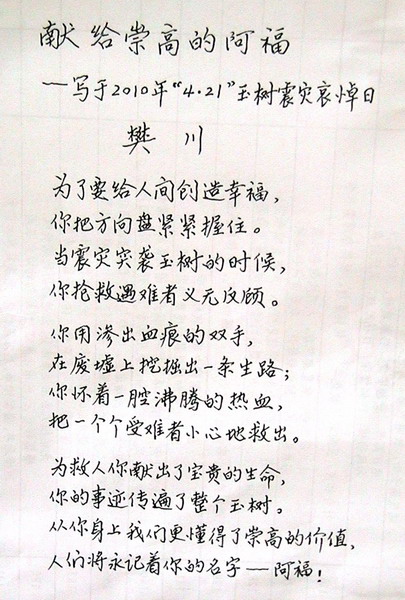 献给崇高的阿福
——写于2010年“4.21”玉树震灾哀悼日
樊川
为了要给人间创造幸福，
你把方向盘紧紧握住。
当震灾突袭玉树的时候，
你抢救遇难者义无反顾。
你用渗出血痕的双手，
在废墟上挖掘出一条生路；
你怀着一腔沸腾的热血，
把一个个受难者小心地救出。
为救人你献出了宝贵的生命，
你的事迹传遍了整个玉树。
从你身上我们更懂得了崇高的价值，
人们将永记着你的名字——阿福！